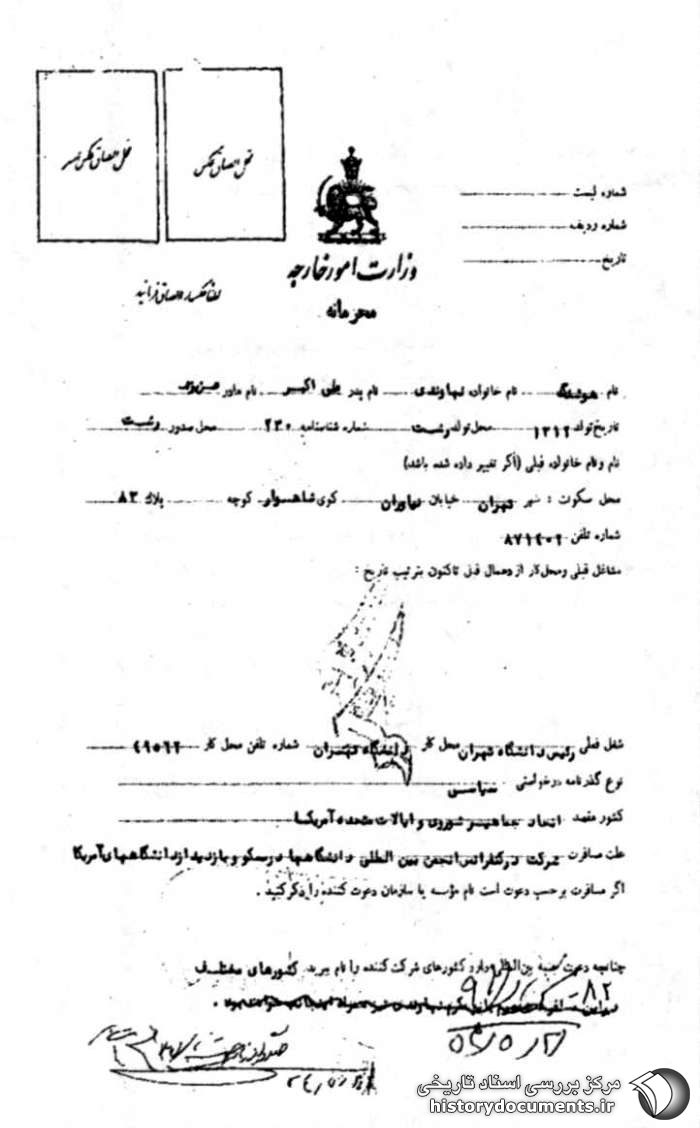 محل الصاق عکس
محل الصاق عکس همسر
لطفا عکسها را الصاق فرمائید
شماره لیست
شماره ردیف
تاریخ
وزارت امور خارجه
محرمانه
نام هوشنگ نام خانواده نهاوندی نام پدر علی اکبر نام مادر عزیزه
تاریخ تولد ۱۳۱۲ محل تولد رشت شماره شناسنامه ۲۳۰ محل صدور رشت
نام و نام خانواده قبلی (اگر تغییر داده شده باشد)
محل سکونت : شهر تهران خیابان نیاوران کوی شاهسوار کوچه پلاک ۸۳
شماره تلفن ۸۷۱۴۰۲
مشاغل قبلی و محل کار از دهسال قبل تاکنون بترتیب تاریخ :
شغل فعلی رئیس دانشگاه تهران محل کار دانشگاه تهران شماره تلفن محل کار ۴۹۵۶۲
نوع گذرنامه درخواستی سیاسی
کشور مقصد اتحاد جماهیر شوروی و ایالات متحده آمریکا
علت مسافرت شرکت در کنفرانس انجمن بین المللی دانشگاهها در مسکو و بازدید از دانشگاههای آمریکا
اگر مسافرت برحسب دعوت است نام مؤسسه یا سازمان دعوت کننده را ذکر کنید .
چنانچه دعوت جنبه بین‌المللی دارد کشورهای شرکت کننده را نام ببرید. کشورهای مختلف
مرکز بررسی اسناد تاریخی
historydocuments.ir